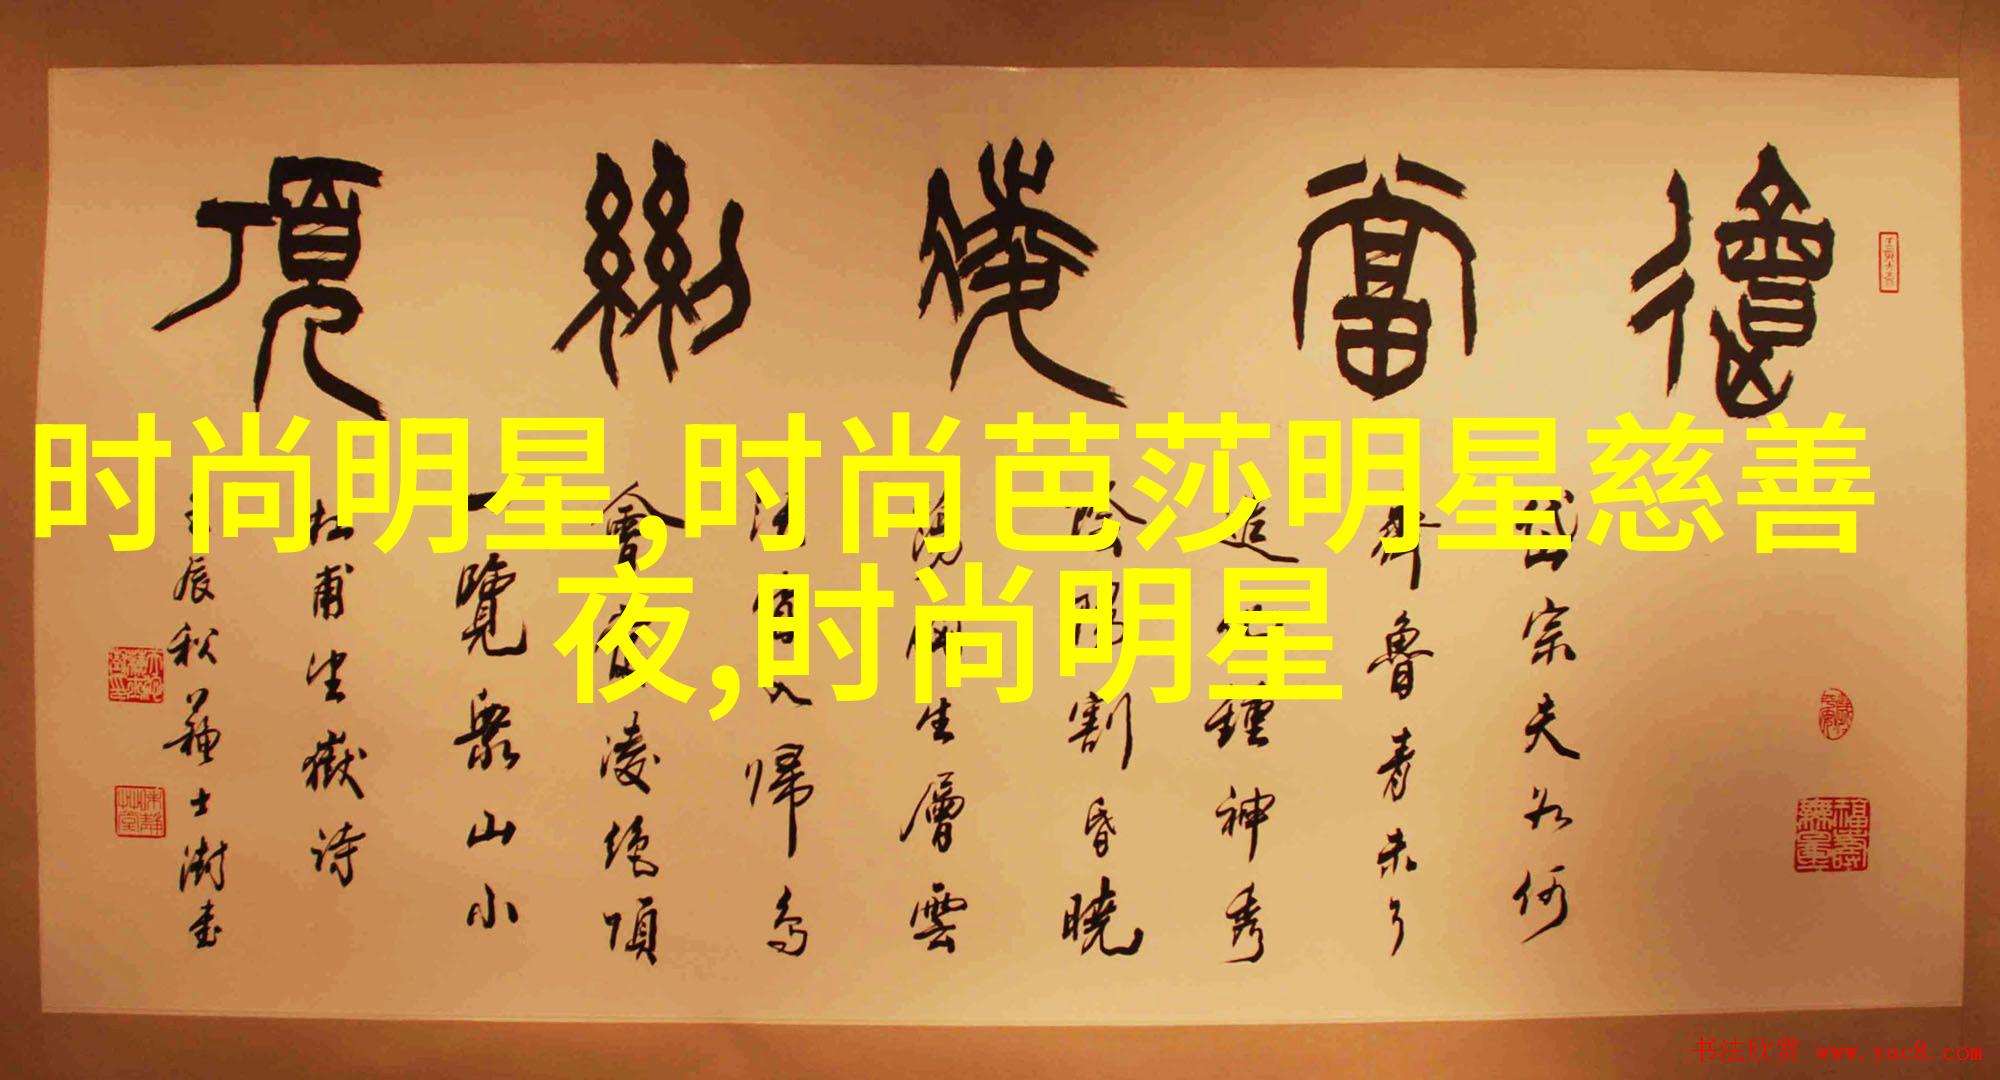 會當凌絕頂
岱宗夫如何
齊魯青未了
造化鍾神秀
陰陽割昏曉
盪胸生層雲
決眥入歸鳥
會當凌絕頂
一覽眾山小
杜甫望嶽詩
壬辰秋蘇士澍書
福壽無量
时尚明星,时尚芭莎明星慈善
夜,时尚明星
书法欣赏 www.yac8.com